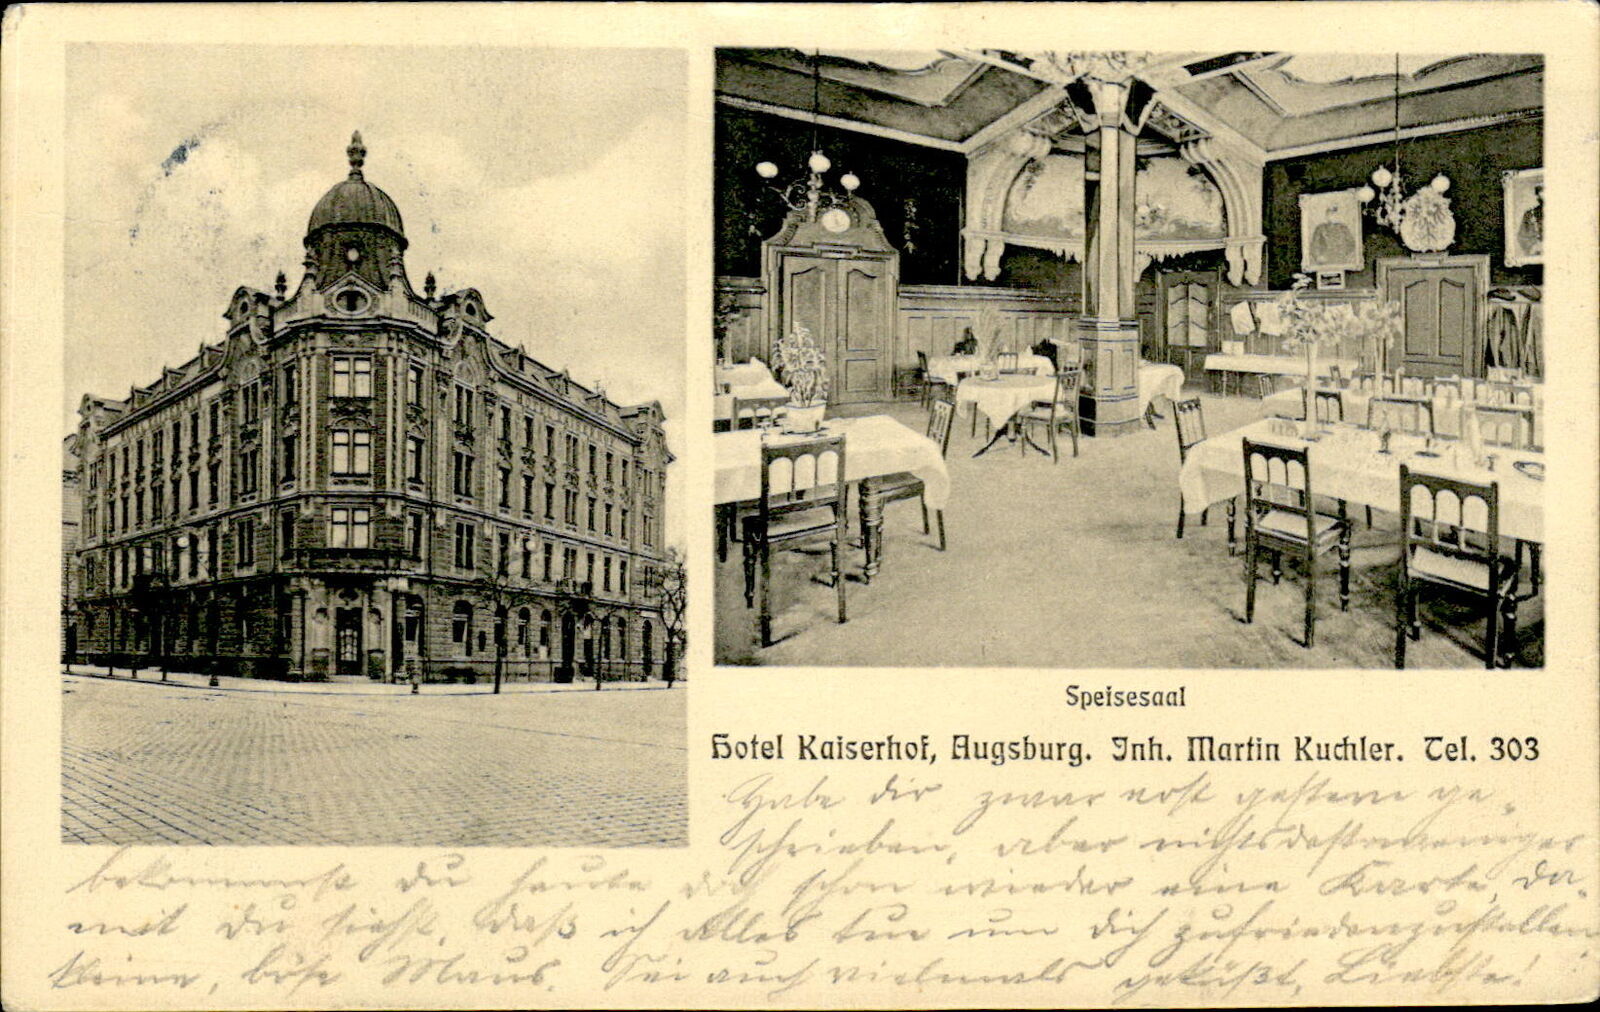 Speisesaal
Hotel Kaiserhof, Augsburg. Inh. Martin Kuchler. Tel. 303
Habe dir zwar erst gestern ge-
schrieben, aber nichtsdestoweniger
bekommst du heute doch schon wieder eine Karte, da-
mit du siehst, daß ich alles tue um dich zufriedenzustellen
kleine, böse Maus. Sei auch vielmals geküßt, Liebste!